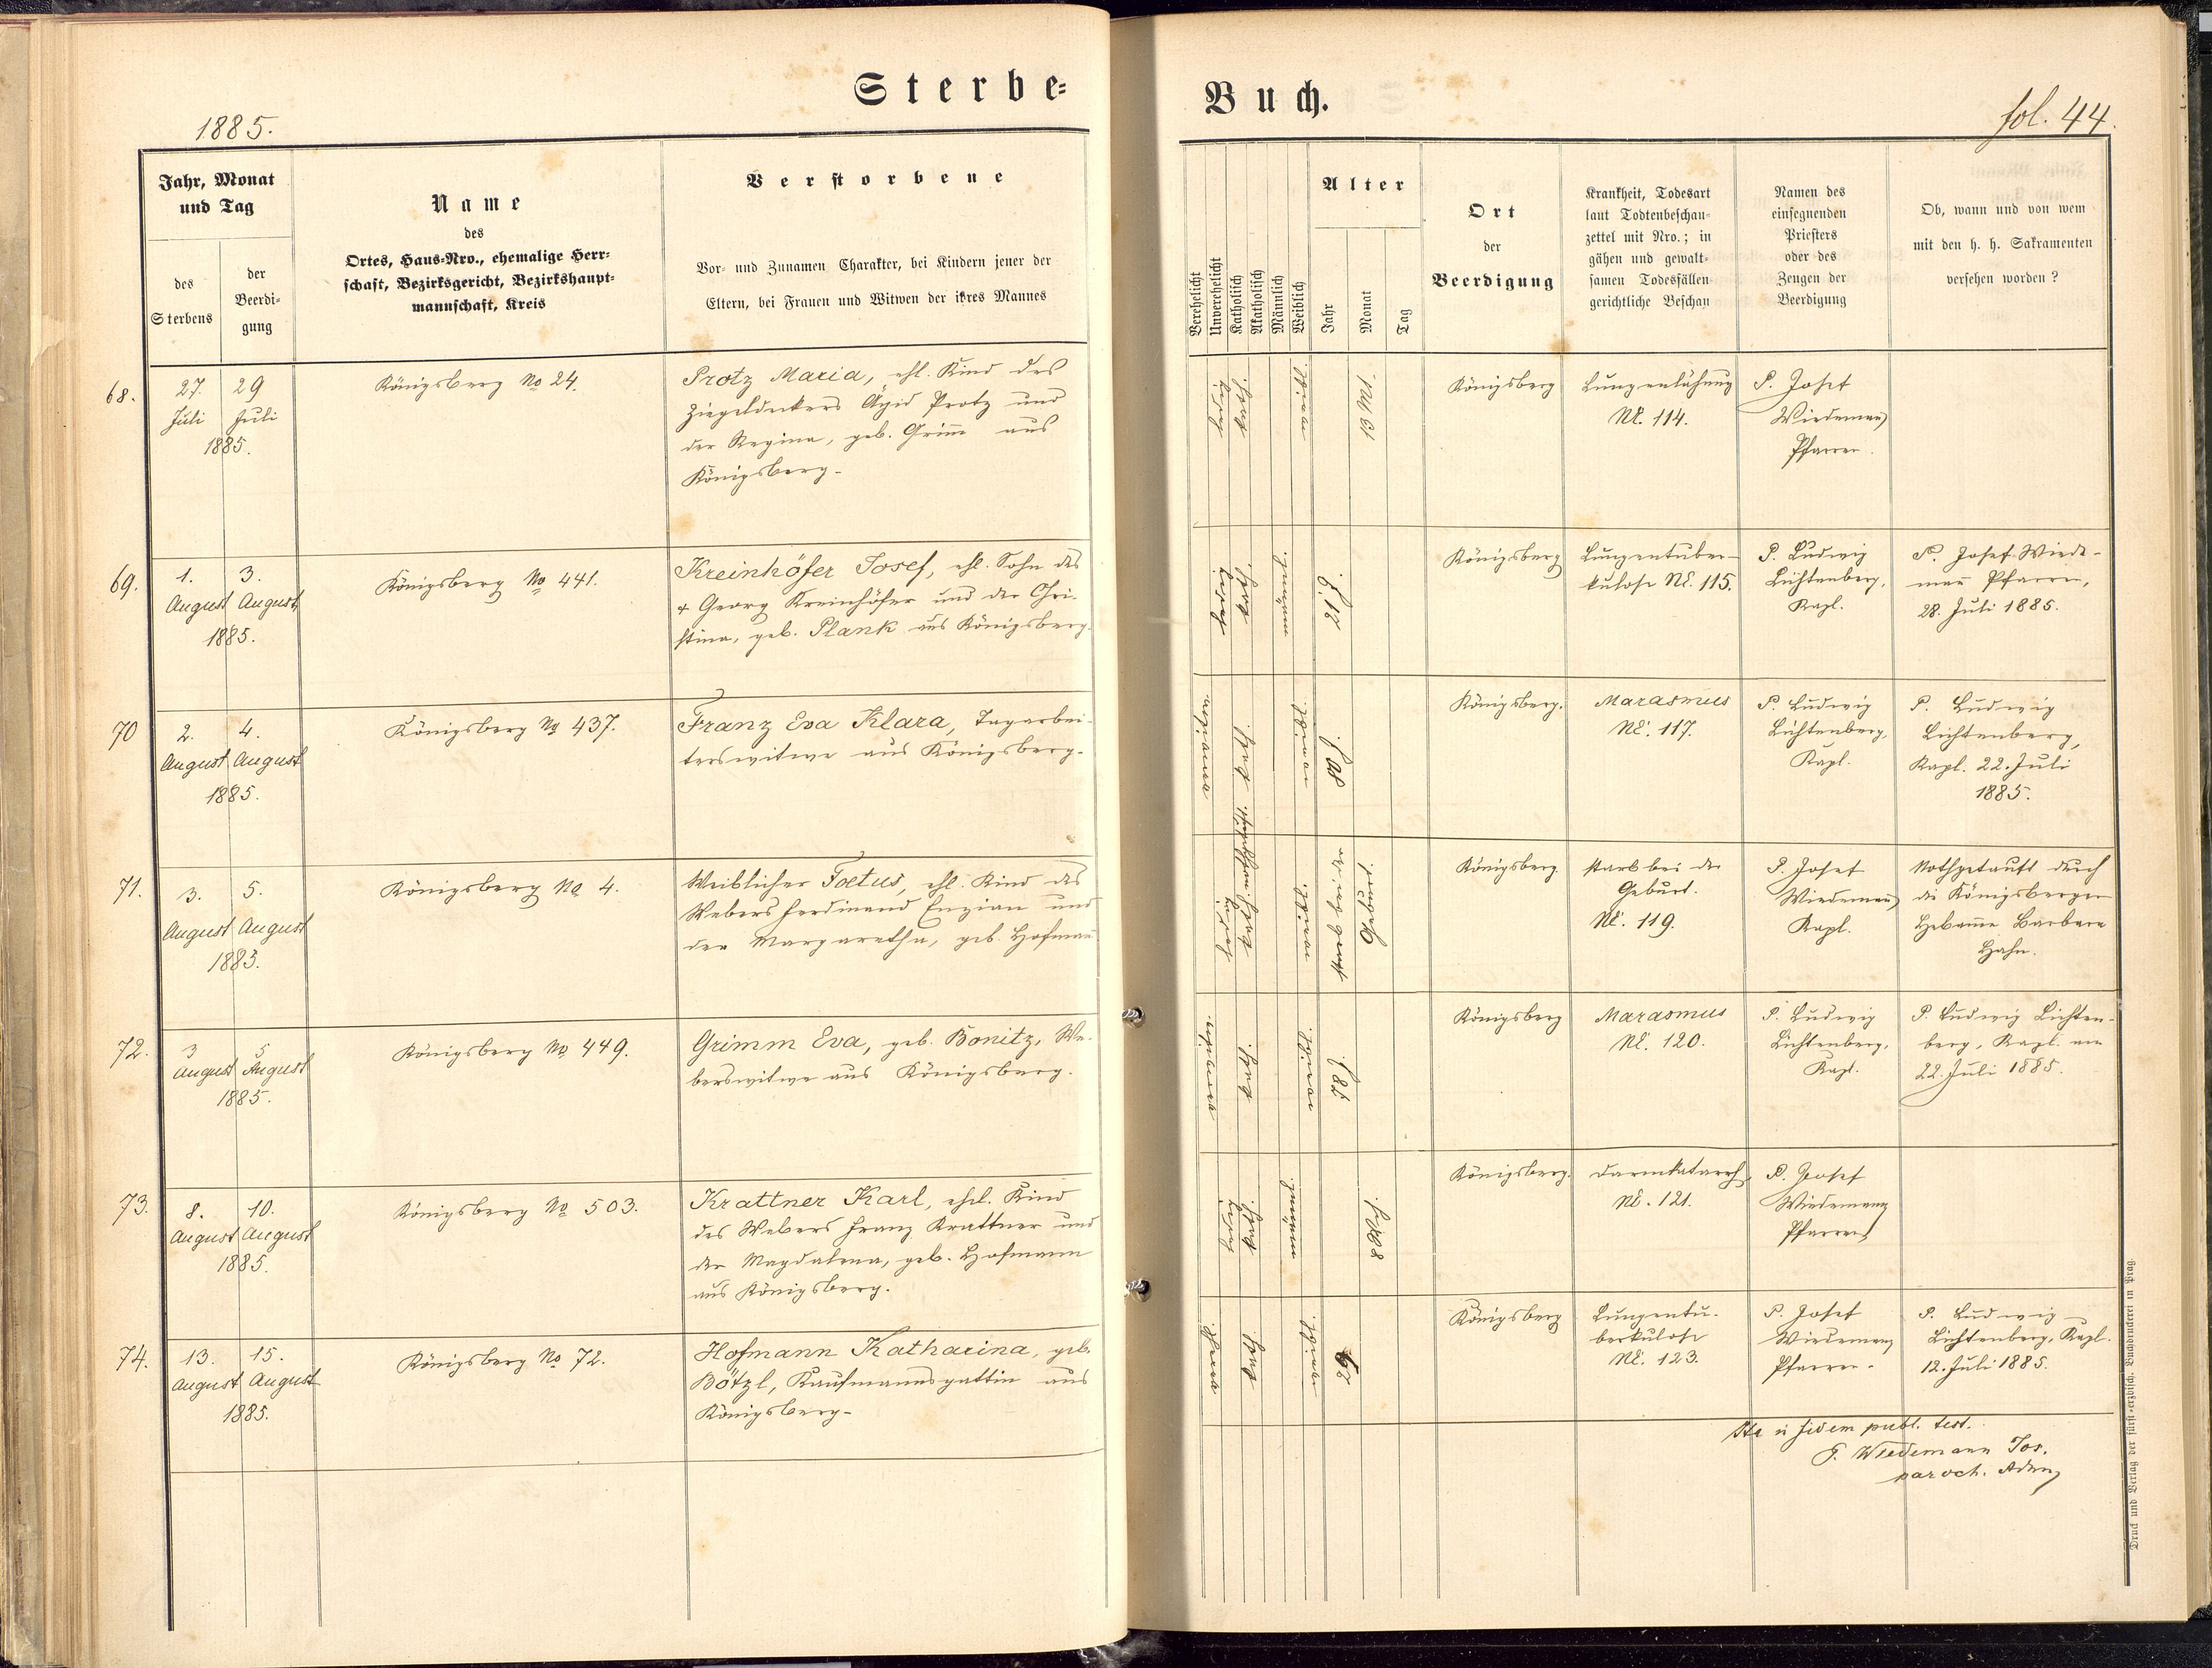 Sterbe=
Buch.
1885.
fol. 44.
Jahr, Monat
und Tag
des
Sterbens
der
Beerdi-
gung
Name
des
Ortes, Haus-Nro., ehemalige Herr-
schaft, Bezirksgericht, Bezirkshaupt-
mannschaft, Kreis
Verstorbene
Vor- und Zunamen Charakter, bei Kindern jener der
Eltern, bei Frauen und Witwen der ihres Mannes
Verehelicht
Unverehelicht
Katholisch
Akatholisch
Männlich
Weiblich
Alter
Jahr
Monat
Tag
Ort
der
Beerdigung
Krankheit, Todesart
laut Todtenbeschau-
zettel mit Nro.; in
gähen und gewalt-
samen Todesfällen
gerichtliche Beschau
Namen des
einsegnenden
Priesters
oder des
Zeugen der
Beerdigung
Ob, wann und von wem
mit den h. h. Sakramenten
versehen worden?
68.
27. 29
Juli Juli
1885.
Königsberg No 24.
Protz Maria, ehl. Kind des
Ziegeldeckers Ägid Protz und
der Regina, geb. Grim̄ aus
Königsberg.
ledig
kath.
weibl.
Königsberg
Lungenlähmung
Nr. 114.
P. Josef
Wiedeman̄
Pfarrer.
69.
1. 3.
August August
1885.
Königsberg No 441.
Kreinhöfer Josef, ehl. Sohn des
+ Georg Kreinhöfer und der Chri-
stina, geb. Plank aus Königsberg.
ledig
kath.
männl.
Königsberg
Lungentuber-
kulose Nr. 115.
P. Ludwig
Lichtenberg,
Kapl.
P. Josef Wiede-
man̄ Pfarrer,
28. Juli 1885.
70
2. 4.
August August
1885.
Königsberg No 437.
Franz Eva Klara, Tagarbei-
terswitwe aus Königsberg.
kath.
weibl.
80 J.
Königsberg.
Marasmus
Nr. 117.
P. Ludwig
Lichtenberg,
Kapl.
P. Ludwig
Lichtenberg,
Kapl. 22. Juli
1885.
71.
3. 5.
August August
1885.
Königsberg No 4.
Weiblicher Foetus, ehl. Kind des
Webers Ferdinand Enzian und
der Margaretha, geb. Hofman̄
ledig
kath.
weibl.
Königsberg.
starb bei der
Geburt.
Nr. 119.
P. Josef
Wiedeman̄
Kapl.
Nothgetauft durch
die Königsberger
Hebam̄e Barbara
Hahn.
72.
3 5
August August
1885.
Königsberg No 449.
Grimm Eva, geb. Bonitz, We-
berswitwe aus Königsberg.
kath.
weibl.
78 J.
Königsberg
Marasmus
Nr. 120.
P. Ludwig
Lichtenberg,
Kapl.
P. Ludwig Lichten-
berg, Kapl. am
22. Juli 1885.
73.
8. 10.
August August
1885.
Königsberg No 503.
Krattner Karl, ehel. Kind
des Webers Franz Krattner und
der Magdalena, geb. Hofmann
aus Königsberg.
ledig
kath.
männl.
Königsberg.
Darmkatarrh,
Nr. 121.
P. Josef
Wiedemann
Pfarrer
74.
13. 15.
August August
1885.
Königsberg No 72.
Hofmann Katharina, geb.
Bötzl, Kaufmannsgattin aus
Königsberg.
kath.
weibl.
Königsberg
Lungentu-
berkulose
Nr. 123.
P. Josef
Wiedemann
Pfarrer.
P. Ludwig
Lichtenberg, Kapl.
12. Juli 1885.
Ita in fidem publ. test.
P. Wiedemann Jos.
paroch. Adm.
Druck und Verlag der fürst-erzbisch. Buchdruckerei in Prag.